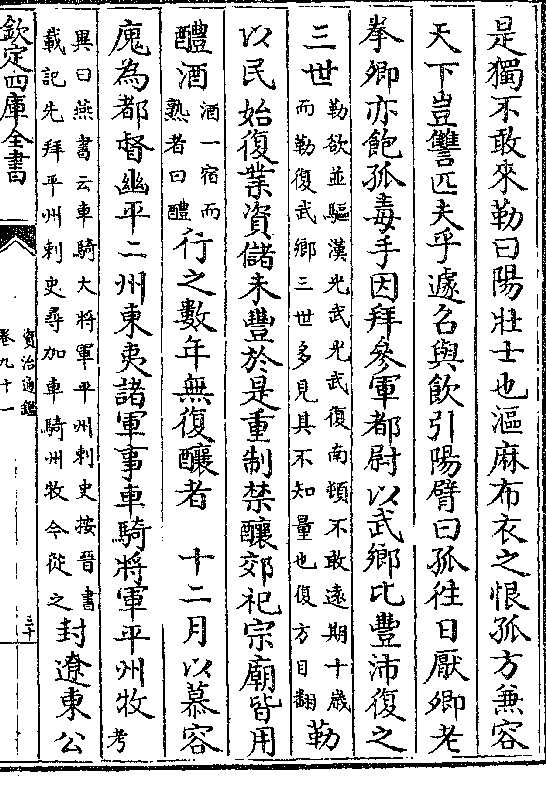 是獨不敢來勒曰陽壯士也漚麻布衣之恨孤方兼容
天下豈讐匹夫乎遽召與飲引陽臂曰孤徃日厭卿老
拳卿亦飽孤毒手因拜參軍都尉以武鄉比豐沛復之
三世勒欲並驅漢光武光武復南頓不敢遠期十歲而勒復武鄉三世多見其不知量也復方目翻勒
以民始復業資儲未豐於是重制禁釀郊祀宗廟皆用
醴酒酒一宿而熟者曰醴行之數年無復釀者 十二月以慕容
廆為都督幽平二州東夷諸軍事車騎將軍平州牧考
異曰燕書云車騎大將軍平州刺史按晉書載記先拜平州刺史尋加車騎州牧今從之封遼東公
欽定四庫全書
資治通鑑
卷九十一
三十